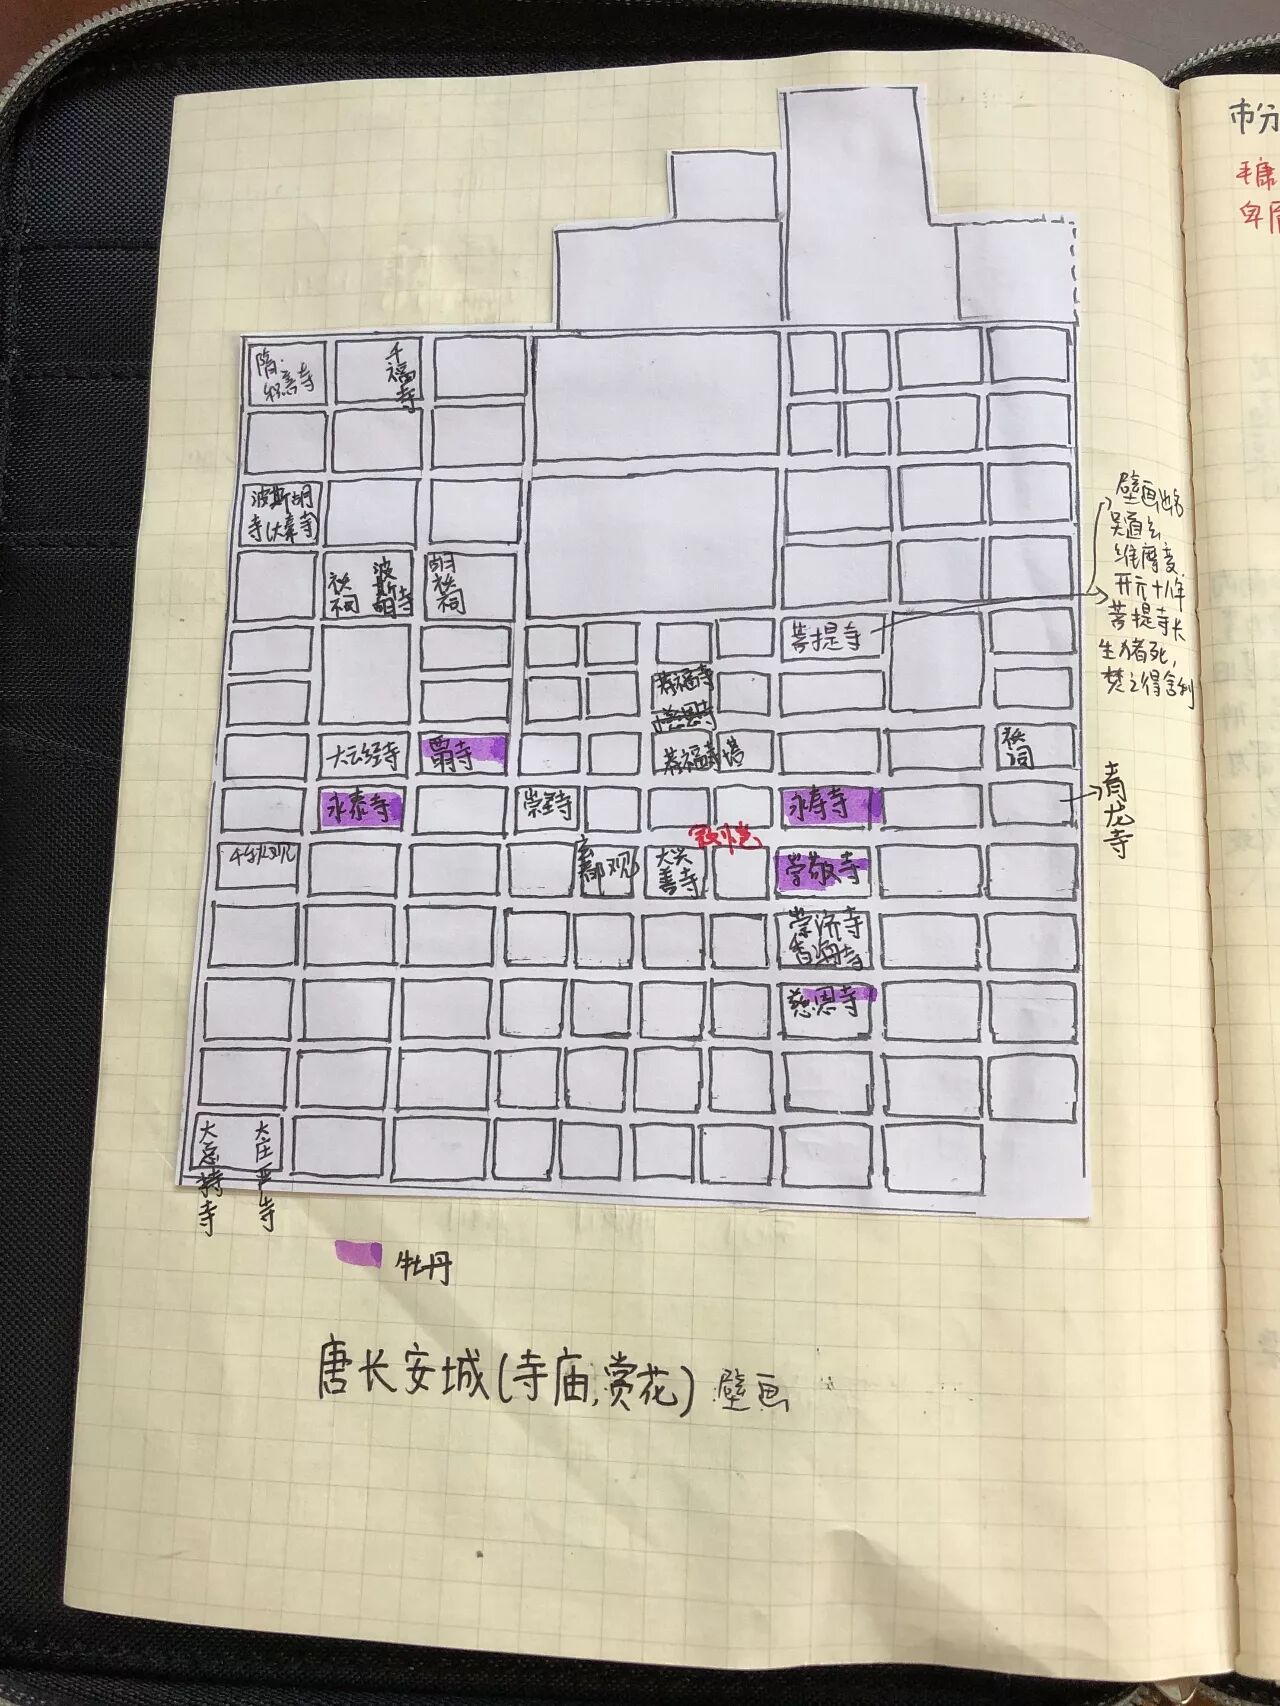 市分
糖
隋.
积善寺
千福寺
波斯胡
寺(大秦寺
祆祠
波斯胡寺
胡祆祠
菩提寺
壁画出名
吴道玄
维摩变.
开元十八年
菩提寺长
生猪死,
焚之得舍利
荐福寺
大云经寺
荐福寺塔
祆祠
永泰寺
永寿寺
青龙寺
千秋观
玄都观
大兴
善寺
崇敬寺
崇济寺
慈恩寺
大总持寺
大庄严寺
牡丹
唐长安城(寺庙,赏花) 壁画